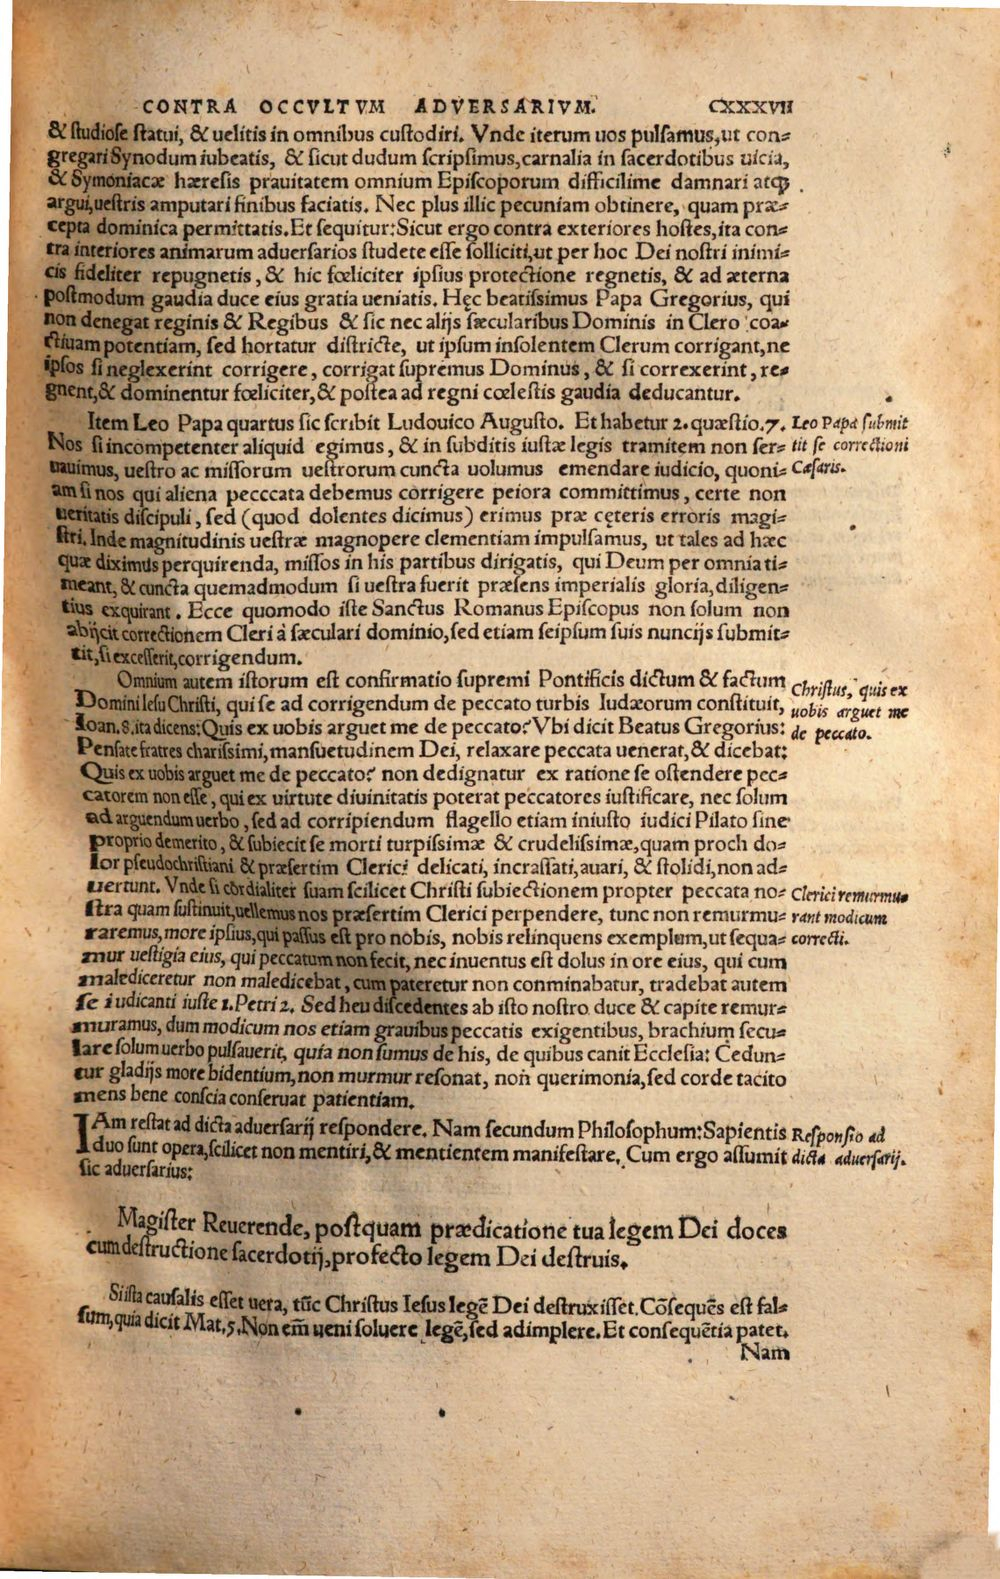 CONTRA OCCVLTVM ADVERSARIVM. CXXXVII
& studiose statui, & uelitis in omnibus custodiri. Vnde iterum uos pulsamus, ut con=
gregari Synodum iubeatis, & sicut dudum scripsimus, carnalia in sacerdotibus uicia,
& Symoniacæ hæresis prauitatem omnium Episcoporum difficilime damnari atqꝫ
argui, uestris amputari finibus faciatis. Nec plus illic pecuniam obtinere, quam præ=
cepta dominica permittatis. Et sequitur: Sicut ergo contra exteriores hostes, ita con=
tra interiores animarum aduersarios studete esse solliciti, ut per hoc Dei nostri inimi=
cis fideliter repugnetis, & hic fœliciter ipsius protectione regnetis, & ad æterna
postmodum gaudia duce eius gratia ueniatis. Hęc beatissimus Papa Gregorius, qui
non denegat reginis & Regibus & sic nec alijs sæcularibus Dominis in Clero coa=
ctiuam potentiam, sed hortatur districte, ut ipsum insolentem Clerum corrigant, ne
ipsos si neglexerint corrigere, corrigat supremus Dominus, & si correxerint, re=
gnent, & dominentur fœliciter, & postea ad regni cœlestis gaudia deducantur.
Item Leo Papa quartus sic scribit Ludouico Augusto. Et habetur 2. quæstio. 7. Leo Papa submit
Nos si incompetenter aliquid egimus, & in subditis iustæ legis tramitem non ser= tit se correctioni
uauimus, uestro ac missorum uestrorum cuncta uolumus emendare iudicio, quoni= Cæsaris.
am si nos qui aliena pecccata debemus corrigere peiora committimus, certe non
ueritatis discipuli, sed (quod dolentes dicimus) erimus præ cęteris erroris magi=
stri. Inde magnitudinis uestræ magnopere clementiam impulsamus, ut tales ad hæc
quæ diximus perquirenda, missos in his partibus dirigatis, qui Deum per omnia ti=
meant, & cuncta quemadmodum si uestra fuerit præsens imperialis gloria, diligen=
tius exquirant. Ecce quomodo iste Sanctus Romanus Episcopus non solum non
abijcit correctionem Cleri à sæculari dominio, sed etiam seipsum suis nuncijs submit=
tit, si excesserit, corrigendum.
Omnium autem istorum est confirmatio supremi Pontificis dictum & factum Christus, quis ex
Domini Iesu Christi, qui se ad corrigendum de peccato turbis Iudæorum constituit, uobis arguet me
Ioan. 8. ita dicens: Quis ex uobis arguet me de peccato? Vbi dicit Beatus Gregorius: de peccato.
Pensate fratres charissimi, mansuetudinem Dei, relaxare peccata uenerat, & dicebat:
Quis ex uobis arguet me de peccato? non dedignatur ex ratione se ostendere pec=
catorem non esse, qui ex uirtute diuinitatis poterat peccatores iustificare, nec solum
ad arguendum uerbo, sed ad corripiendum flagello etiam iniusto iudici Pilato sine
proprio demerito, & subiecit se morti turpissimæ & crudelissimæ, quam proch do=
lor pseudochristiani & præsertim Clerici delicati, incrassati, auari, & stolidi, non ad=
uertunt. Vnde si cordialiter suam scilicet Christi subiectionem propter peccata no= Clerici remurmu=
stra quam sustinuit, uellemus nos præsertim Clerici perpendere, tunc non remurmu= rant modicum
raremus, more ipsius, qui passus est pro nobis, nobis relinquens exemplum, ut sequa= correcti.
mur uestigia eius, qui peccatum non fecit, nec inuentus est dolus in ore eius, qui cum
malediceretur non maledicebat, cum pateretur non conminabatur, tradebat autem
se iudicanti iuste 1. Petri 2. Sed heu discedentes ab isto nostro duce & capite remur=
muramus, dum modicum nos etiam grauibus peccatis exigentibus, brachium secu=
lare solum uerbo pulsauerit, quia non sumus de his, de quibus canit Ecclesia: Cedun=
tur gladijs more bidentium, non murmur resonat, non querimonia, sed corde tacito
mens bene conscia conseruat patientiam.
IAm restat ad dicta aduersarij respondere. Nam secundum Philosophum: Sapientis Responsio ad
duo sunt opera, scilicet non mentiri, & mentientem manifestare. Cum ergo assumit dicta aduersarij.
sic aduersarius:
Magister Reuerende, postquam prædicatione tua legem Dei doces
cum destructione sacerdotij, profecto legem Dei destruis.
Si ista causalis esset uera, tũc Christus Iesus legẽ Dei destruxisset. Cõsequẽs est fal=
sum, quia dicit Mat. 5. Non em̃ ueni soluere legẽ, sed adimplere. Et consequẽtia patet.
Nam